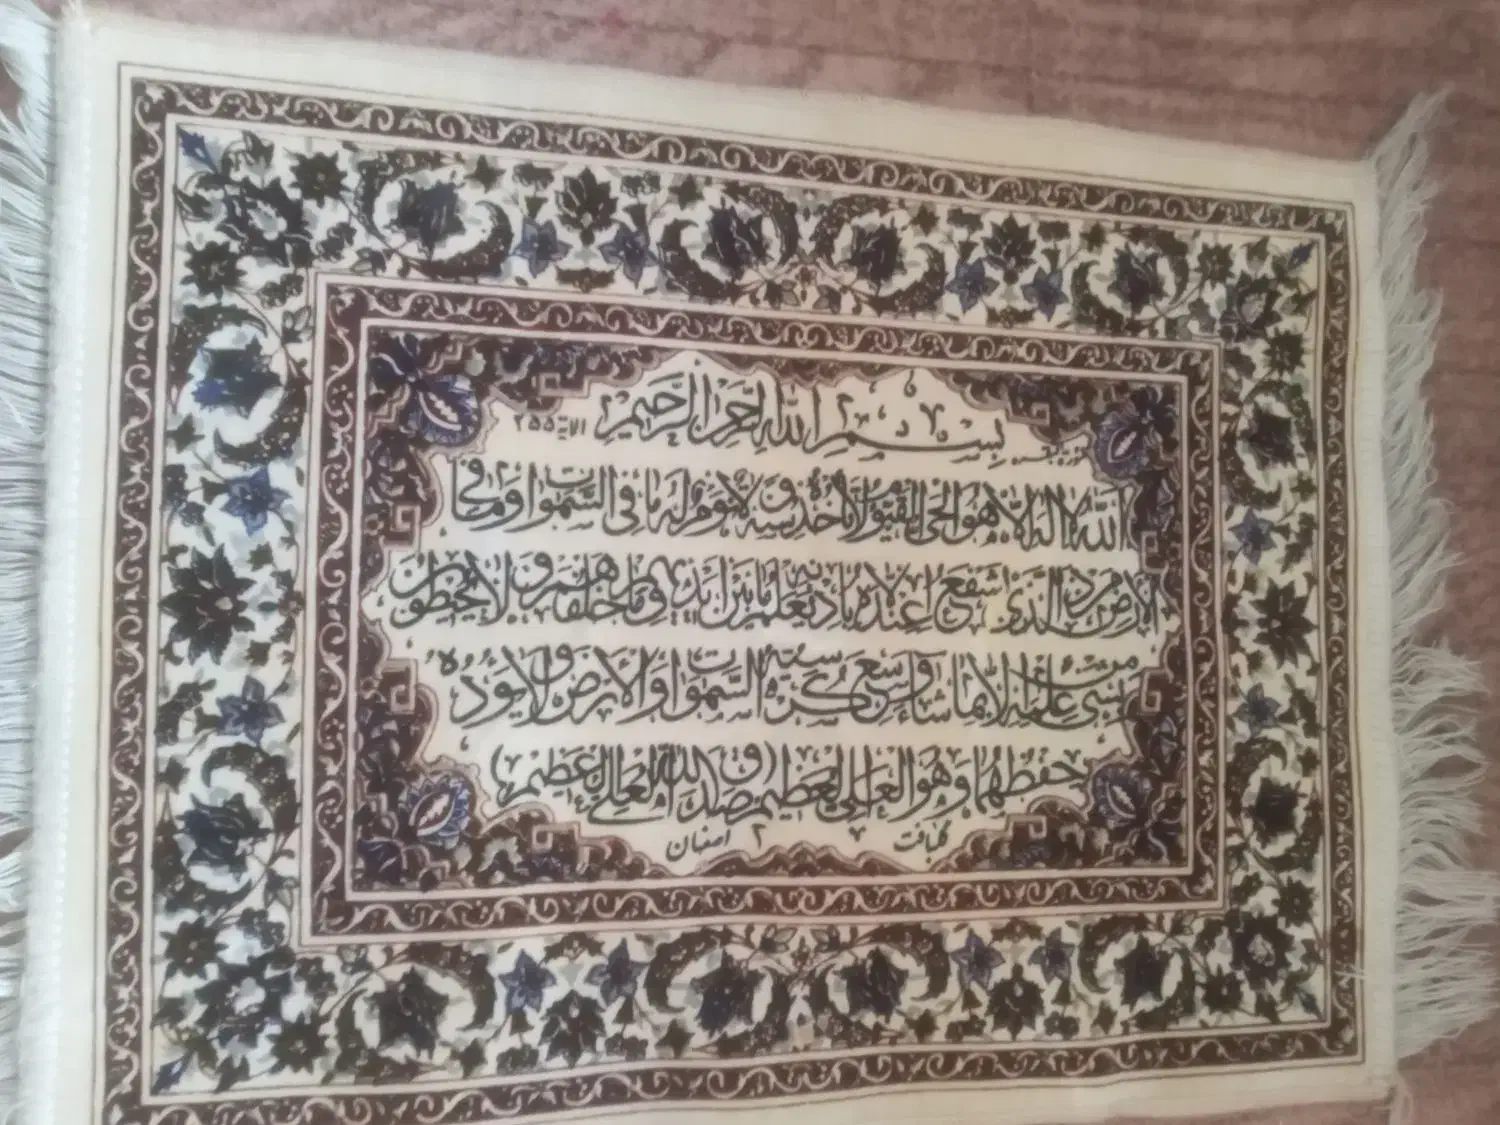 بِسْمِ اللهِ الرَّحْمنِ الرَّحِيمِ الآية ٢٥٥
اَللهُ لا اِلهَ اِلّا هُوَ الحَيُّ القَيُّومُ لا تَأخُذُهُ سِنَةٌ وَلا نَوْمٌ لَهُ ما فِي السَّمواتِ وَما فِي
الاَرْضِ مَنْ ذَا الَّذِي يَشْفَعُ عِنْدَهُ اِلّا بِاِذْنِهِ يَعْلَمُ ما بَيْنَ اَيْدِيهِمْ وَما خَلْفَهُمْ وَلا يُحِيطُونَ
بِشَيْءٍ مِنْ عِلْمِهِ اِلّا بِما شاءَ وَسِعَ كُرْسِيُّهُ السَّمواتِ وَالاَرْضَ وَلا يَؤُدُهُ
حِفْظُهُما وَهُوَ العَلِيُّ العَظِيمُ (صَدَقَ اللهُ العَلِيُّ العَظِيمُ)
گلبافت اصفهان